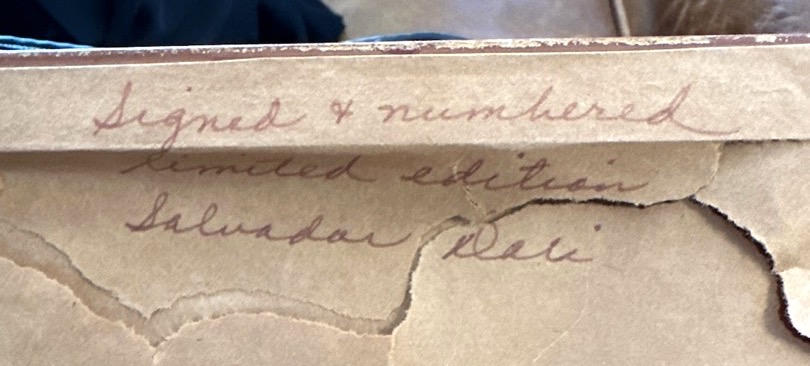 Signed & numbered
limited edition
Salvador Dali